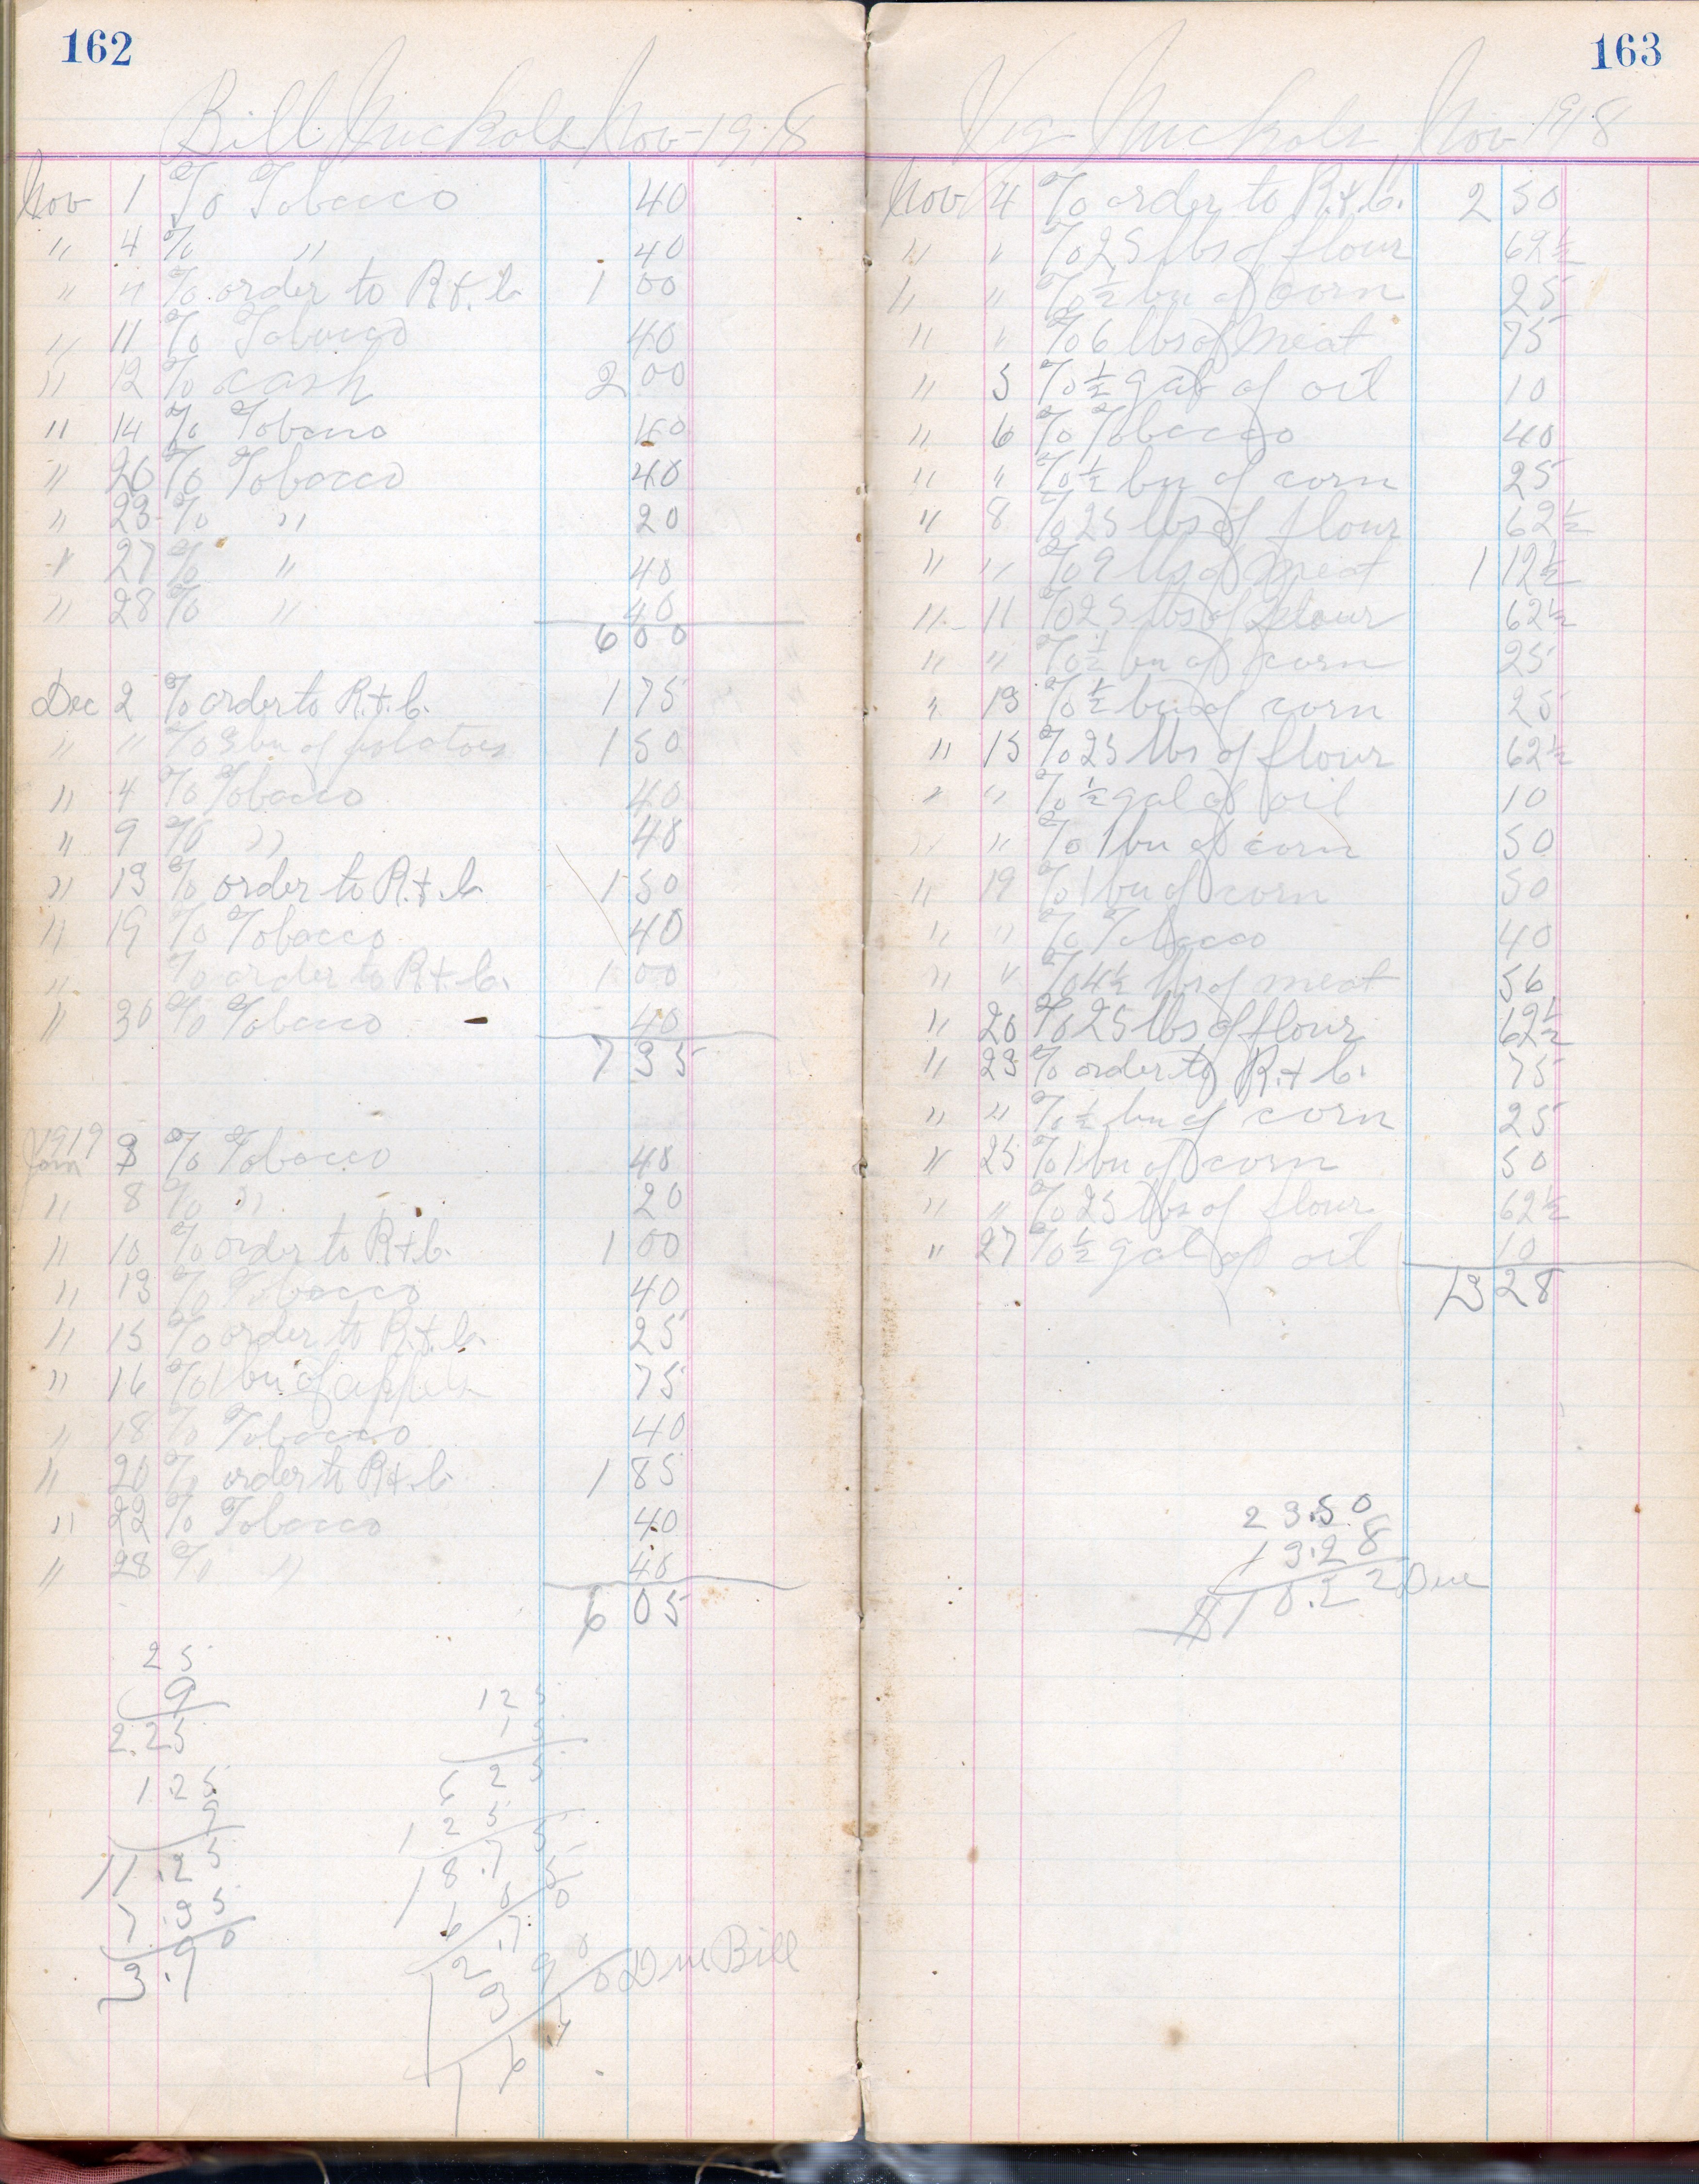 162
Bill Nickols Nov-1918
Nov 1 To Tobacco 40
" 4 To " 40
" " To order to R.+.C. 1 00
" 11 To Tobacco 40
" 12 To cash 2 00
" 14 To Tobacco 40
" 20 To Tobacco 40
" 23 To " 20
" 27 To " 40
" 28 To " 40
6 00
Dec 2 To order to R.+.C. 1 75
" " To 3 bu of potatoes 1 50
" 4 To Tobacco 40
" 9 To " 40
" 13 To order to R.+.C. 1 50
" 19 To Tobacco 40
" To order to R.+.C. 1 00
" 30 To Tobacco 40
7 35
1919
Jan 3 To Tobacco 40
" 8 To " 20
" 10 To order to R+C. 1 00
" 13 To Tobacco 40
" 15 To order to R.+.C. 25
" 16 To 1 bu of apples 75
" 18 To Tobacco 40
" 20 To order to R+C. 1 85
" 22 To Tobacco 40
" 28 To " 40
6 05
25
9
2.25
1.25
9
11.25
7.35
3.90
125
15
625
125
18.75
6 05
12.70
3 90
16.60 Due Bill
163
Nickols Nov 1918
Nov 4 To order to R.+.C. 2 50
" " To 25 lbs of flour 62½
" " To ½ bu of corn 25
" " To 6 lbs of meat 75
" 5 To ½ gal of oil 10
" 6 To Tobacco 40
" " To ½ bu of corn 25
" 8 To 25 lbs of flour 62½
" " To 9 lbs of meat 1 12½
" 11 To 25 lbs of flour 62½
" " To ½ bu of corn 25
" 13 To ½ bu of corn 25
" 15 To 25 lbs of flour 62½
" " To ½ gal of oil 10
" " To 1 bu of corn 50
" 19 To 1 bu of corn 50
" " To Tobacco 40
" " To 4½ lbs of meat 56
" 20 To 25 lbs of flour 62½
" 23 To order to R.+C. 75
" " To ½ bu of corn 25
" 25 To 1 bu of corn 50
" " To 25 lbs of flour 62½
" 27 To ½ gal of oil 10
13 28
23.50
13.28
$10.22 Due